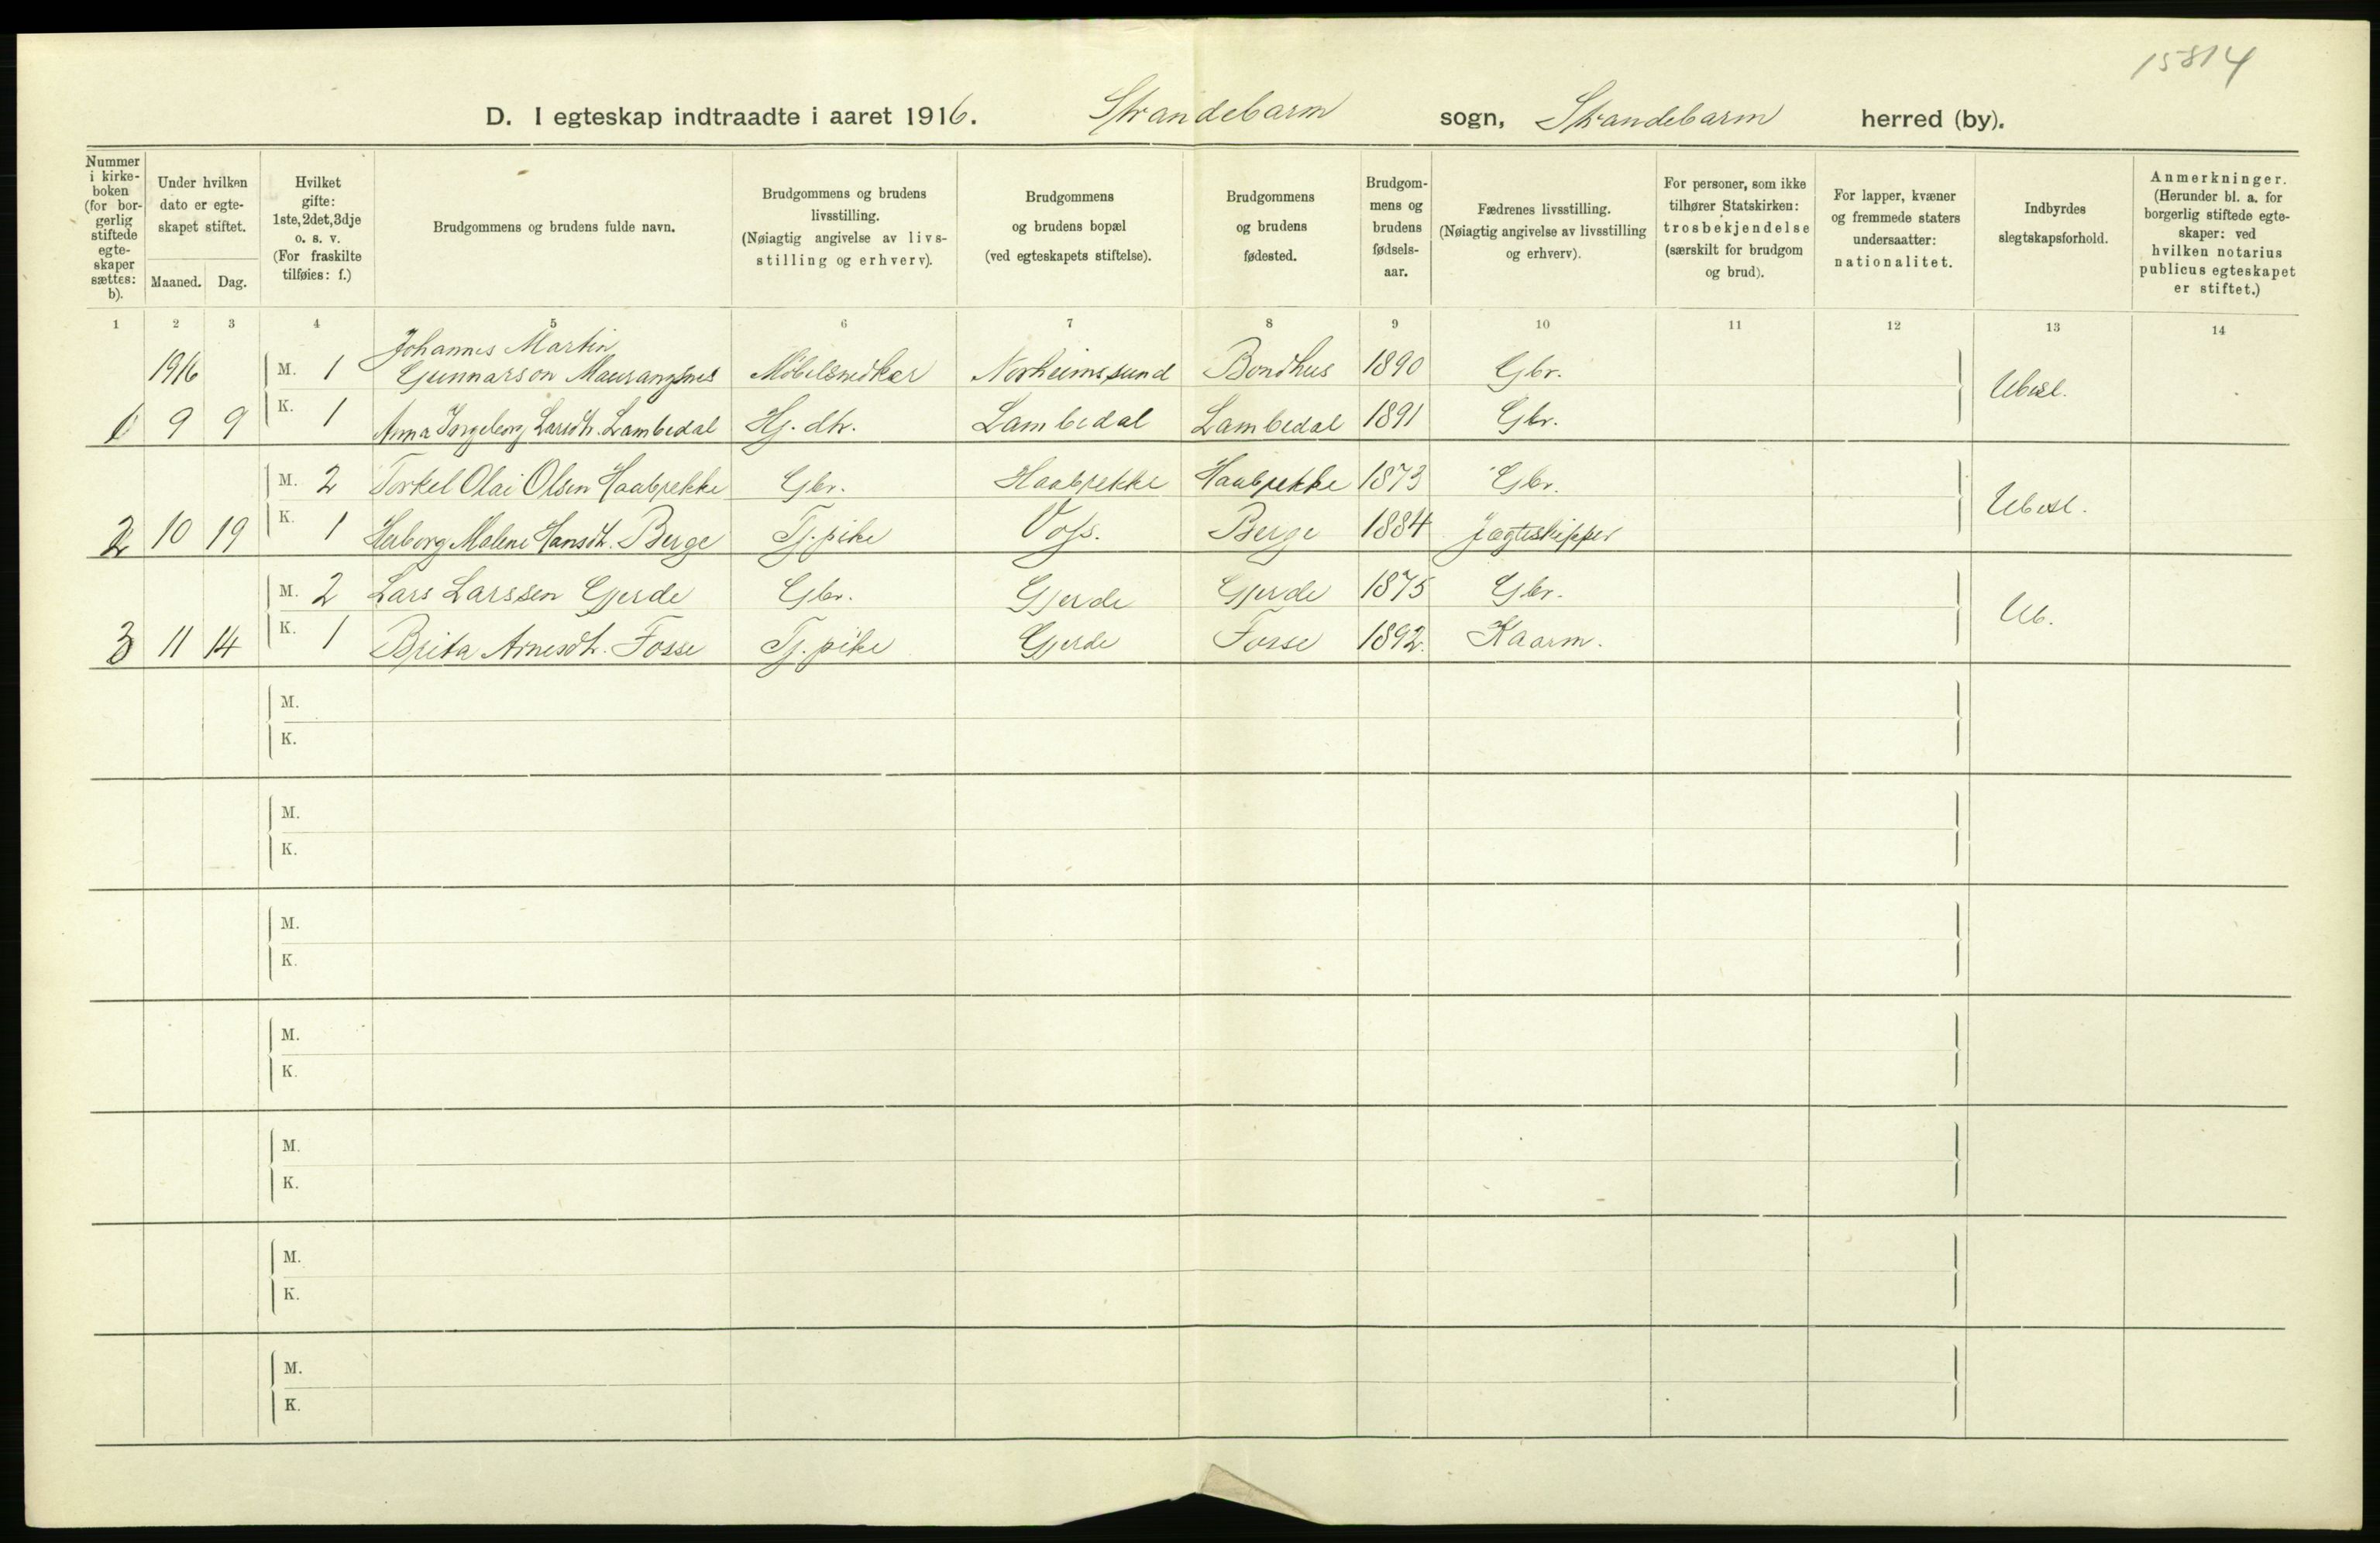 15814
D. I egteskap indtraadte i aaret 1916. Strandebarm sogn, Strandebarm herred (by).
Nummer i kirkeboken (for borgerlig stiftede egteskaper sættes: b).
Under hvilken dato er egteskapet stiftet.
Maaned. Dag.
Hvilket gifte: 1ste, 2det, 3dje o. s. v. (For fraskilte tilføies: f.)
Brudgommens og brudens fulde navn.
Brudgommens og brudens livsstilling. (Nøiagtig angivelse av livsstilling og erhverv).
Brudgommens og brudens bopæl (ved egteskapets stiftelse).
Brudgommens og brudens fødested.
Brudgommens og brudens fødselsaar.
Fædrenes livsstilling. (Nøiagtig angivelse av livsstilling og erhverv).
For personer, som ikke tilhører Statskirken: trosbekjendelse (særskilt for brudgom og brud).
For lapper, kvæner og fremmede staters undersaatter: nationalitet.
Indbyrdes slegtskapsforhold.
Anmerkninger. (Herunder bl. a. for borgerlig stiftede egteskaper: ved hvilken notarius publicus egteskapet er stiftet.)
1 2 3 4 5 6 7 8 9 10 11 12 13 14
Johannes Martin
1916 M. 1 Gunnarson Maurangsnes Møbelsnedker Norheimssund Bondhus 1890 Gbr.
Ubesl.
1 9 9 K. 1 Anna Ingeborg Larsdtr. Lambedal Hj. dtr. Lambedal Lambedal 1891 Gbr.
M. 2 Torkel Olai Olsen Haabrekke Gbr. Haabrekke Haabrekke 1873 Gbr.
Ubesl.
2 10 19 K. 1 Herborg Malene Hansdt. Berge Tj. pike Voss. Berge 1884 Jægteskipper
M. 2 Lars Larssen Gjerde Gbr. Gjerde Gjerde 1875 Gbr.
Ub.
3 11 14 K. 1 Brita Arnesdt. Fosse Tj. pike Gjerde Fosse 1892. Kaarm.
M.
K.
M.
K.
M.
K.
M.
K.
M.
K.
M.
K.
M.
K.